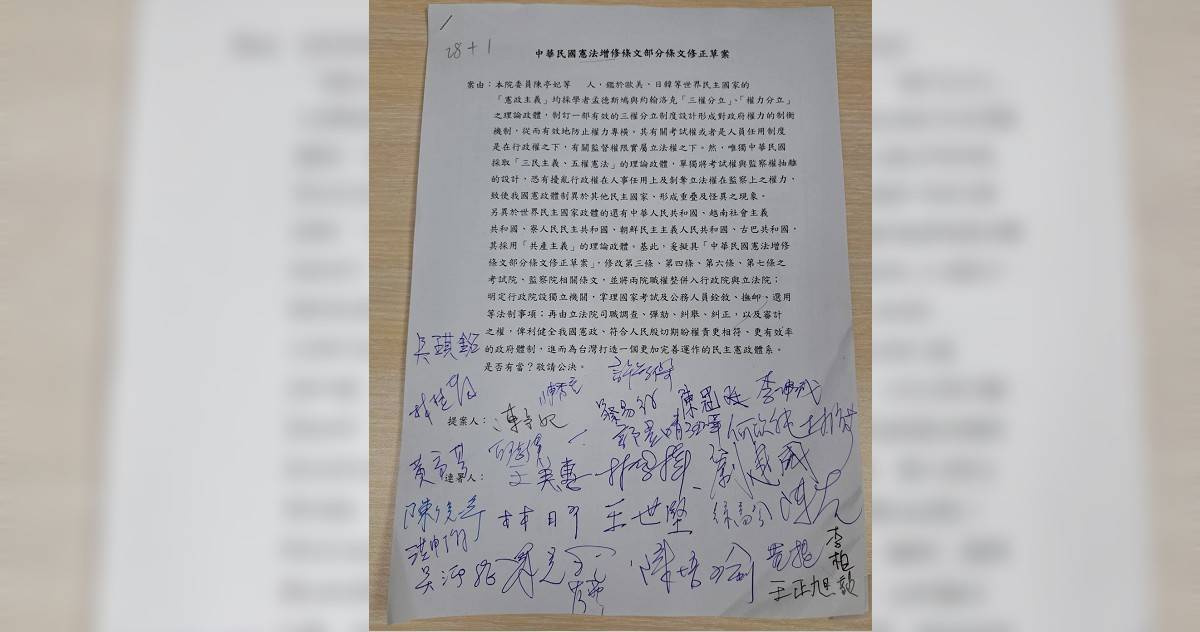 28+1
中華民國憲法增修條文部分條文修正草案
案由：本院委員陳亭妃等　人，鑑於歐美、日韓等世界民主國家的
「憲政主義」均採學者孟德斯鳩與約翰洛克「三權分立」、「權力分立」
之理論政體，制訂一部有效的三權分立制度設計形成對政府權力的制衡
機制，從而有效地防止權力專橫。其有關考試權或者是人員任用制度
是在行政權之下，有關監督權限實屬立法權之下。然，唯獨中華民國
採取「三民主義、五權憲法」的理論政體，單獨將考試權與監察權抽離
的設計，恐有擾亂行政權在人事任用上及剝奪立法權在監察上之權力，
致使我國憲政體制異於其他民主國家、形成重疊及怪異之現象。
另異於世界民主國家政體的還有中華人民共和國、越南社會主義
共和國、寮人民民主共和國、朝鮮民主主義人民共和國、古巴共和國，
其採用「共產主義」的理論政體。基此，爰擬具「中華民國憲法增修
條文部分條文修正草案」，修改第三條、第四條、第六條、第七條之
考試院、監察院相關條文，並將兩院職權整併入行政院與立法院；
明定行政院設獨立機關，掌理國家考試及公務人員銓敘、撫卹、選用
等法制事項；再由立法院司職調查、彈劾、糾舉、糾正，以及審計
之權，俾利健全我國憲政、符合人民殷切期盼權責更相符、更有效率
的政府體制，進而為台灣打造一個更加完善運作的民主憲政體系。
是否有當？敬請公決。
吳琪銘
陳秀
提案人：陳亭妃
陳冠廷
李坤城
郭昱晴
何欣純
連署人：
王美惠
劉建國
陳俊宇
林明
王世堅
洪申翰
陳培瑜
李柏毅
王正旭